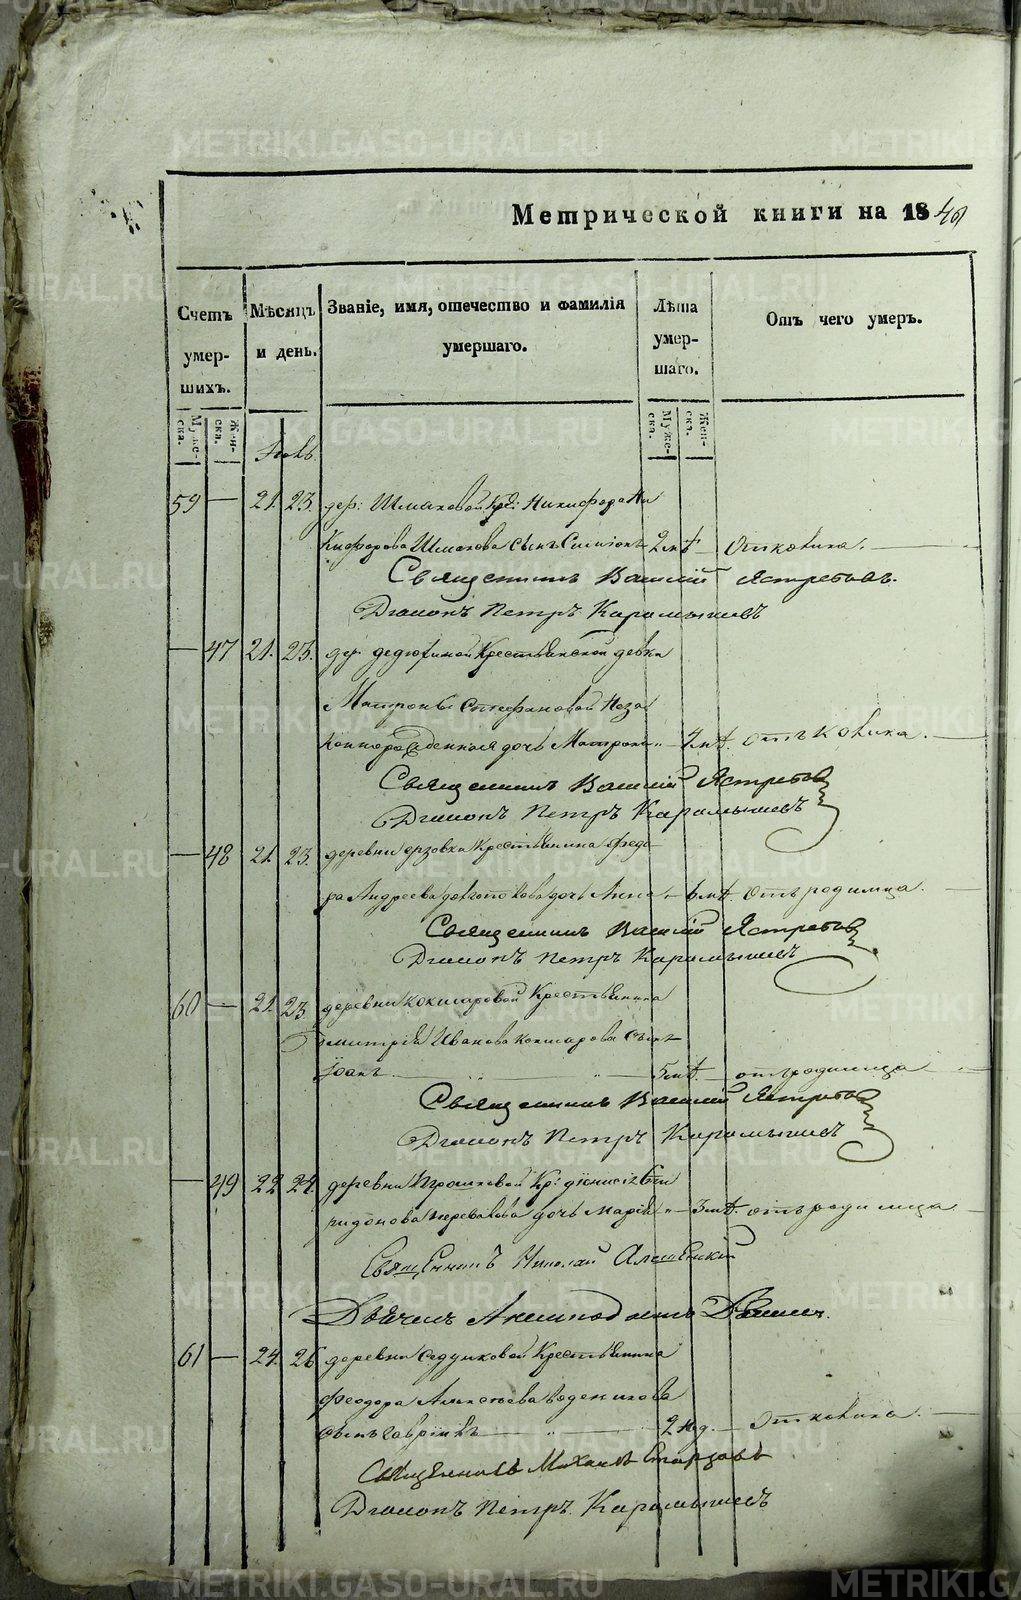 METRIKI.GASO-URAL.RU
Метрической книги на 1840
Счетъ умер-шихъ.
Мѣсяцъ и день.
Званіе, имя, отечество и фамилія умершаго.
Лѣта умер-шаго.
Отъ чего умеръ.
Муже-ска.
Жен-ска.
Муже-ска.
Жен-ска.
59 — 21. 23. дер: Шмаковой Кр: Никифора Ни
кифорова Шмакова сынъ Симіонъ 2 нѣ — от коклюша.
Священникъ Василій Ястребовъ.
Діаконъ Петръ Карамышевъ
— 47 21. 23. дер. Дедюхиной Крестьянской девки
Матроны Стефановой Неза
коннорожденная дочь Матрона — нѣ. отъ коклюша.
Священникъ Василій Ястребовъ
Діаконъ Петръ Карамышевъ
— 48 21. 23. деревни Ерзовки Крестьянина Федо
ра Андреева дочь Анна — 6 нѣ. отъ родимца.
Священникъ Василій Ястребовъ
Діаконъ Петръ Карамышевъ
60 — 21. 23. деревни Кокшаровой Крестьянина
Дмитрія Иванова Кокшарова сынъ
Іоанъ — 5 нѣ. — отъ родимца
Священникъ Василій Ястребовъ
Діаконъ Петръ Карамышевъ
— 49 22 24. деревни Кр: Діонисія Спи
ридонова дочь Марія — 3 нѣ. отъ родимца
Священникъ Николай
61 — 24. 26. деревни Седунковой Крестьянина
Феодора Алексѣева Воденикова
сынъ Гавріилъ — 2 нед. — от коклюша.
Священникъ Михаилъ
Діаконъ Петръ Карамышевъ